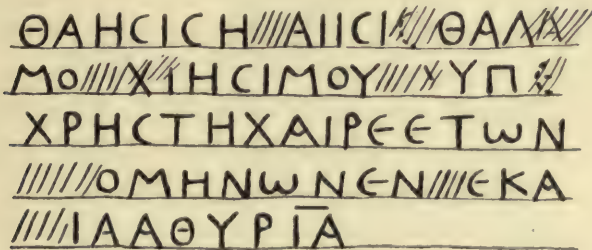 ΘΑΗϹΙϹΗ ΑΙΙϹΙ ΘΑΛ
ΜΟ ΧΙΗϹΙΜΟΥ ΥΠ
ΧΡΗϹΤΗΧΑΙΡΕΕΤωΝ
ΟΜΗΝωΝΕΝ ΕΚΑ
ΙΑΑΘΥΡΙ̅Α̅